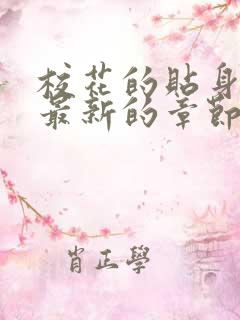 校花的貼身
最新的章節
肖正學